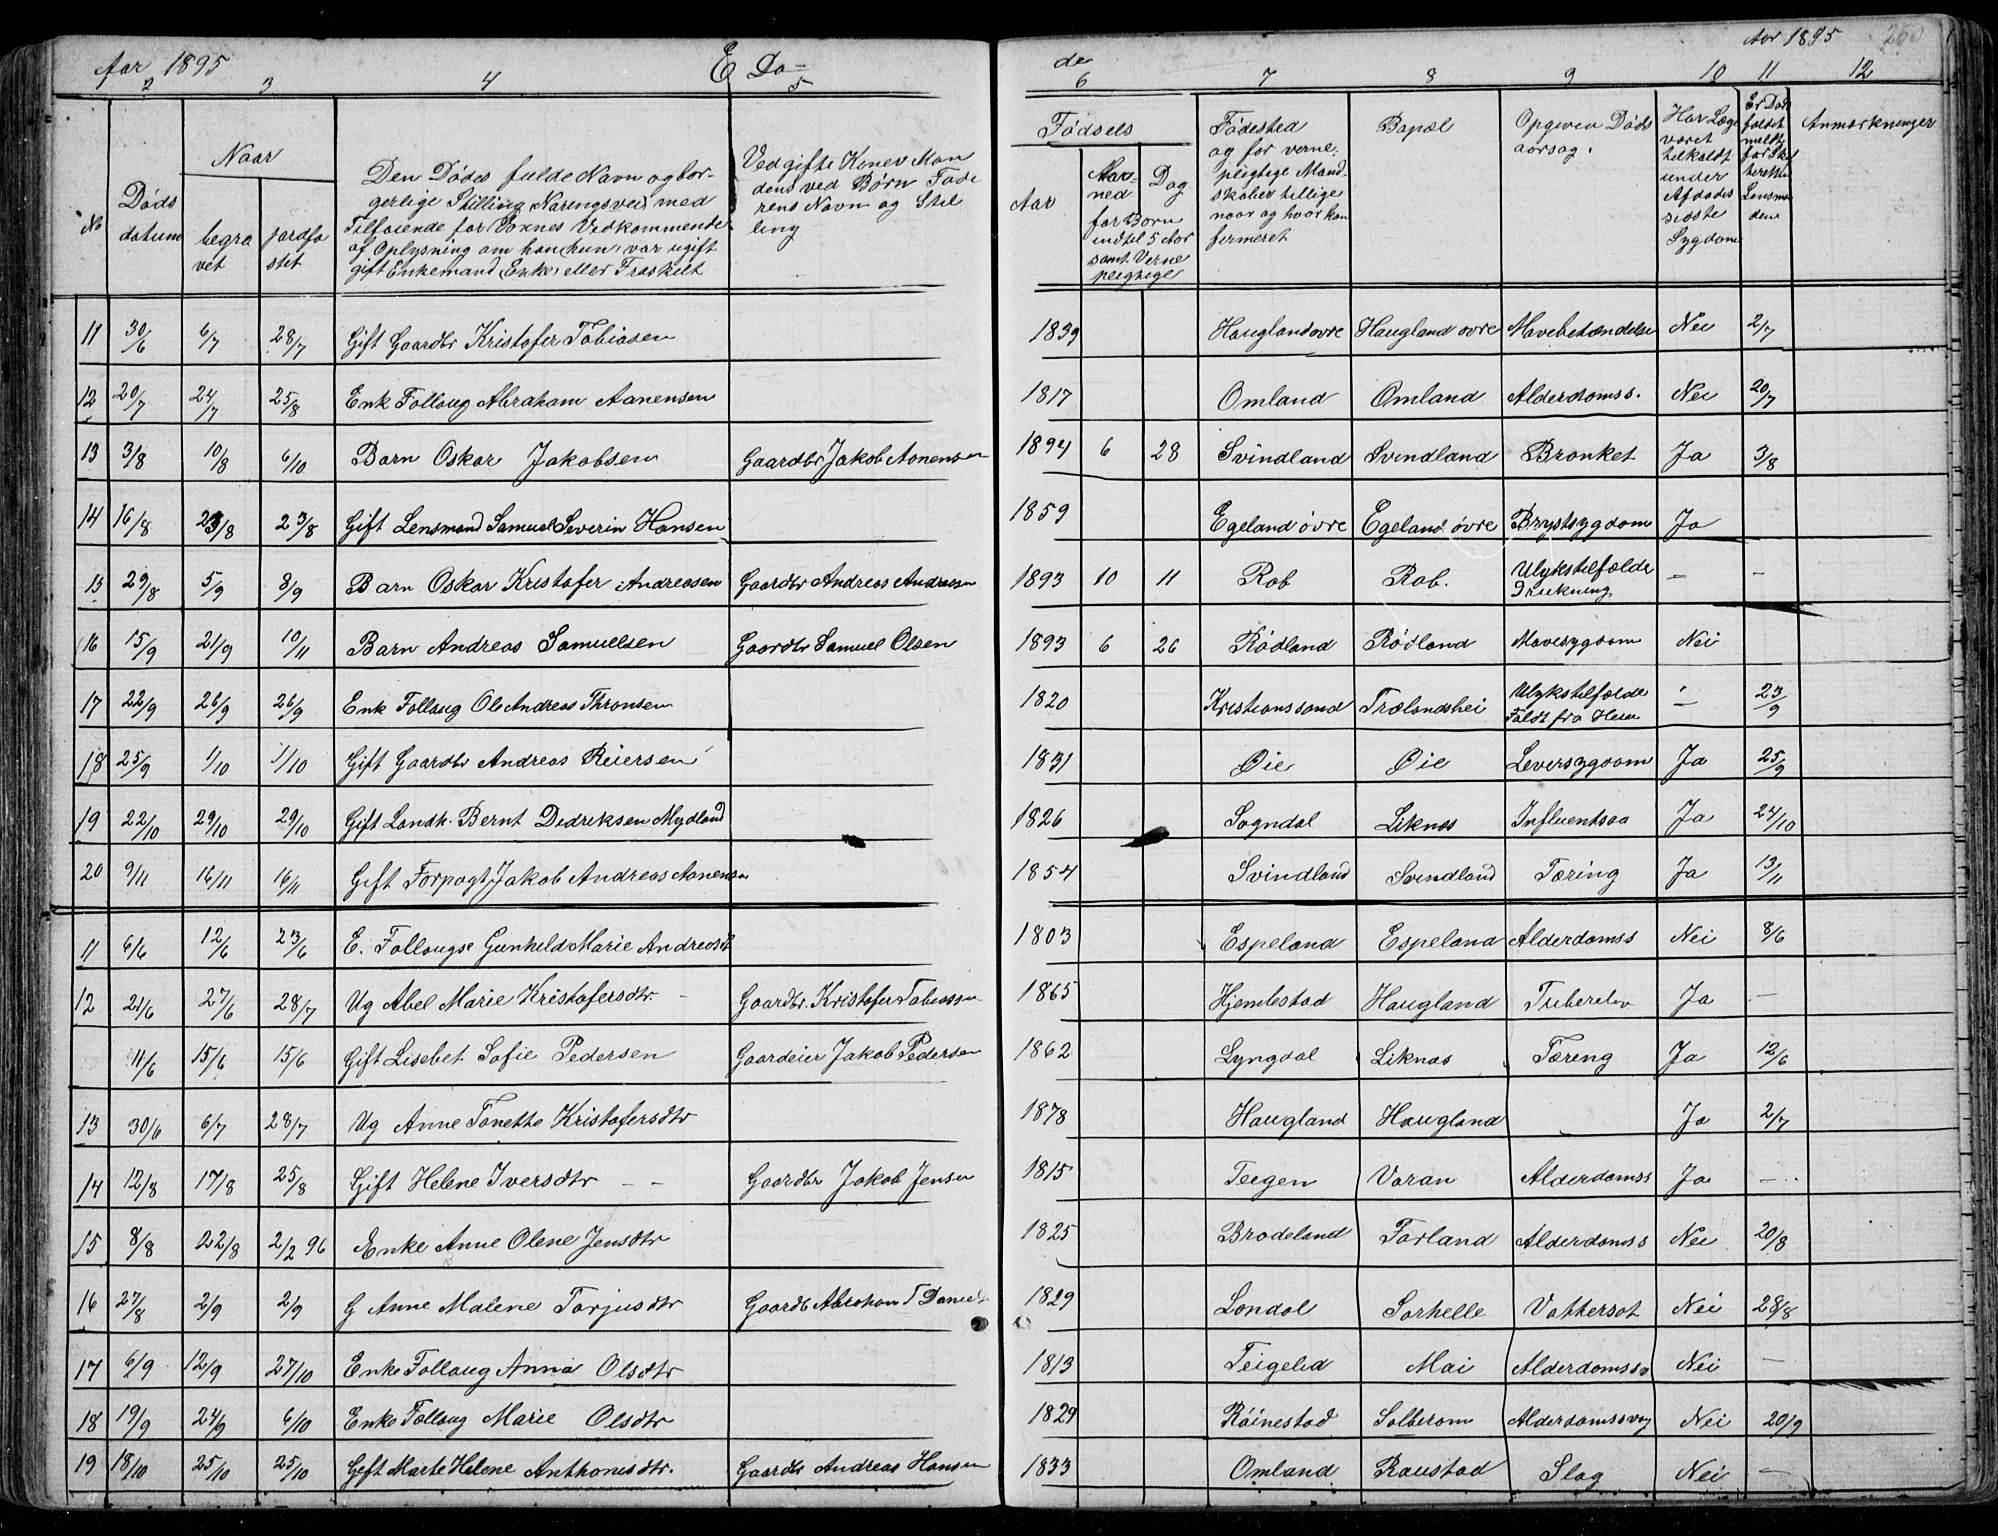 Aar 1895 E Dø- de Aar 1895 260
1 2 3 4 5 6 7 8 9 10 11 12
No
Døds datum
Naar
begra vet
jordfæ stet
Den Dødes fulde Navn og bor-
gerlige Stilling, Næringsvei med
Tilføiende for Voxnes Vedkommende
af Oplysning om han, hun, var ugift
gift Enkemand, Enke, eller Fraskilt
Ved gifte Koner Man
dens ved Børn Fade
rens Navn og Stil
ling
Fødsels
Aar
Maa- ned
Dag
for Børn
indtil 5 Aar
samt Verne
pligtige
Fødested
og for verne-
pligtige Mand-
skaber tillige
naar og hvor kon
firmeret
Bopæl
Opgiven Døds
aarsag.
Har Læge
været
tilkaldt
under
Afdødes
sidste
Sygdom
Er Døds
faldet
meldt
for Skif
teretten
Lensma
dene
Anmærkninger
11 30/6 6/7 28/7 Gift Gaardbr Kristofer Tobiasen 1839 Haugland øvre Haugland øvre Mavebetændelse Nei 2/7
12 20/7 24/7 25/8 Enk Follaug Abraham Aanensen 1817 Omland Omland Alderdomss. Nei 20/7
13 3/8 10/8 6/10 Barn Oskar Jakobsen Gaardbr Jakob Aanensen 1894 6 28 Svindland Svindland Bronket Ja 3/8
14 16/8 23/8 23/8 Gift Lensmand Samuel Severin Hansen 1859 Egeland øvre Egeland øvre Brystsygdom Ja
15 29/8 5/9 8/9 Barn Oskar Kristofer Andreasen Gaardbr Andreas Andreasen 1893 10 11 Rob Rob. Ulykstilfælde Drukning - -
16 15/9 21/9 10/11 Barn Andreas Samuelsen Gaardbr Samuel Olsen 1893 6 26 Rødland Rødland Mavesygdom Nei
17 22/9 26/9 26/9 Enk Follaug Ole Andreas Thronsen 1820 Kristianssand Trælandshei Ulykstilfælde Faldt fra - 23/9
18 25/9 1/10 1/10 Gift Gaardbr Andreas Reiersen 1831 Øie Øie Leversygdom Ja 25/9
19 22/10 29/10 29/10 Gift Landh. Bernt Didriksen Mydland 1826 Sogndal Liknes Influentsaa Ja 24/10
20 9/11 16/11 16/11 Gift Forpagt Jakob Andreas Aanensen 1854 Svindland Svindland Tæring Ja 13/11
11 6/6 12/6 23/6 E. Follaugse Gunhild Marie Andreasdt 1803 Espeland Espeland Alderdomss Nei 8/6
12 21/6 27/6 28/7 Ug Abel Marie Kristofersdtr - Gaardbr. Kristofer Tobiassen 1865 Hjemlestad Haugland Ja -
11/6 15/6 15/6 Gift Lisebet Sofie Pedersen Gaardeier Jakob Pedersen 1862 Lyngdal Liknes Tæring Ja 12/6
13 30/6 6/7 28/7 Ug Anne Tonette Kristofersdtr 1878 Haugland Haugland Ja 2/7
14 12/8 17/8 25/8 Gift Helene Iversdtr - - Gaardbr Jakob Jensen 1815 Teigen Varan Alderdomss Ja -
15 8/8 22/8 2/2 96 Enke Anne Olene Jensdtr 1825 Brodeland Farland Alderdomss Nei 20/8
16 27/8 2/9 2/9 G Anne Malene Tarjusdtr Gaardb Abraham T Daniels 1829 Londal Sarhelle Vattersot Nei 28/8
17 6/9 12/9 27/10 Enke Follaug Anna Olsdtr 1813 Teigelid Mai Alderdomssv Nei -
18 19/9 24/9 6/10 Enke Follaug Marie Olsdtr 1829 Røinestad Salberom Alderdomssvag Nei 20/9
19 18/10 25/10 25/10 Gift Marte Helene Anthonisdtr. Gaardbr Andreas Hansen 1833 Omland Raustad Slag Nei -